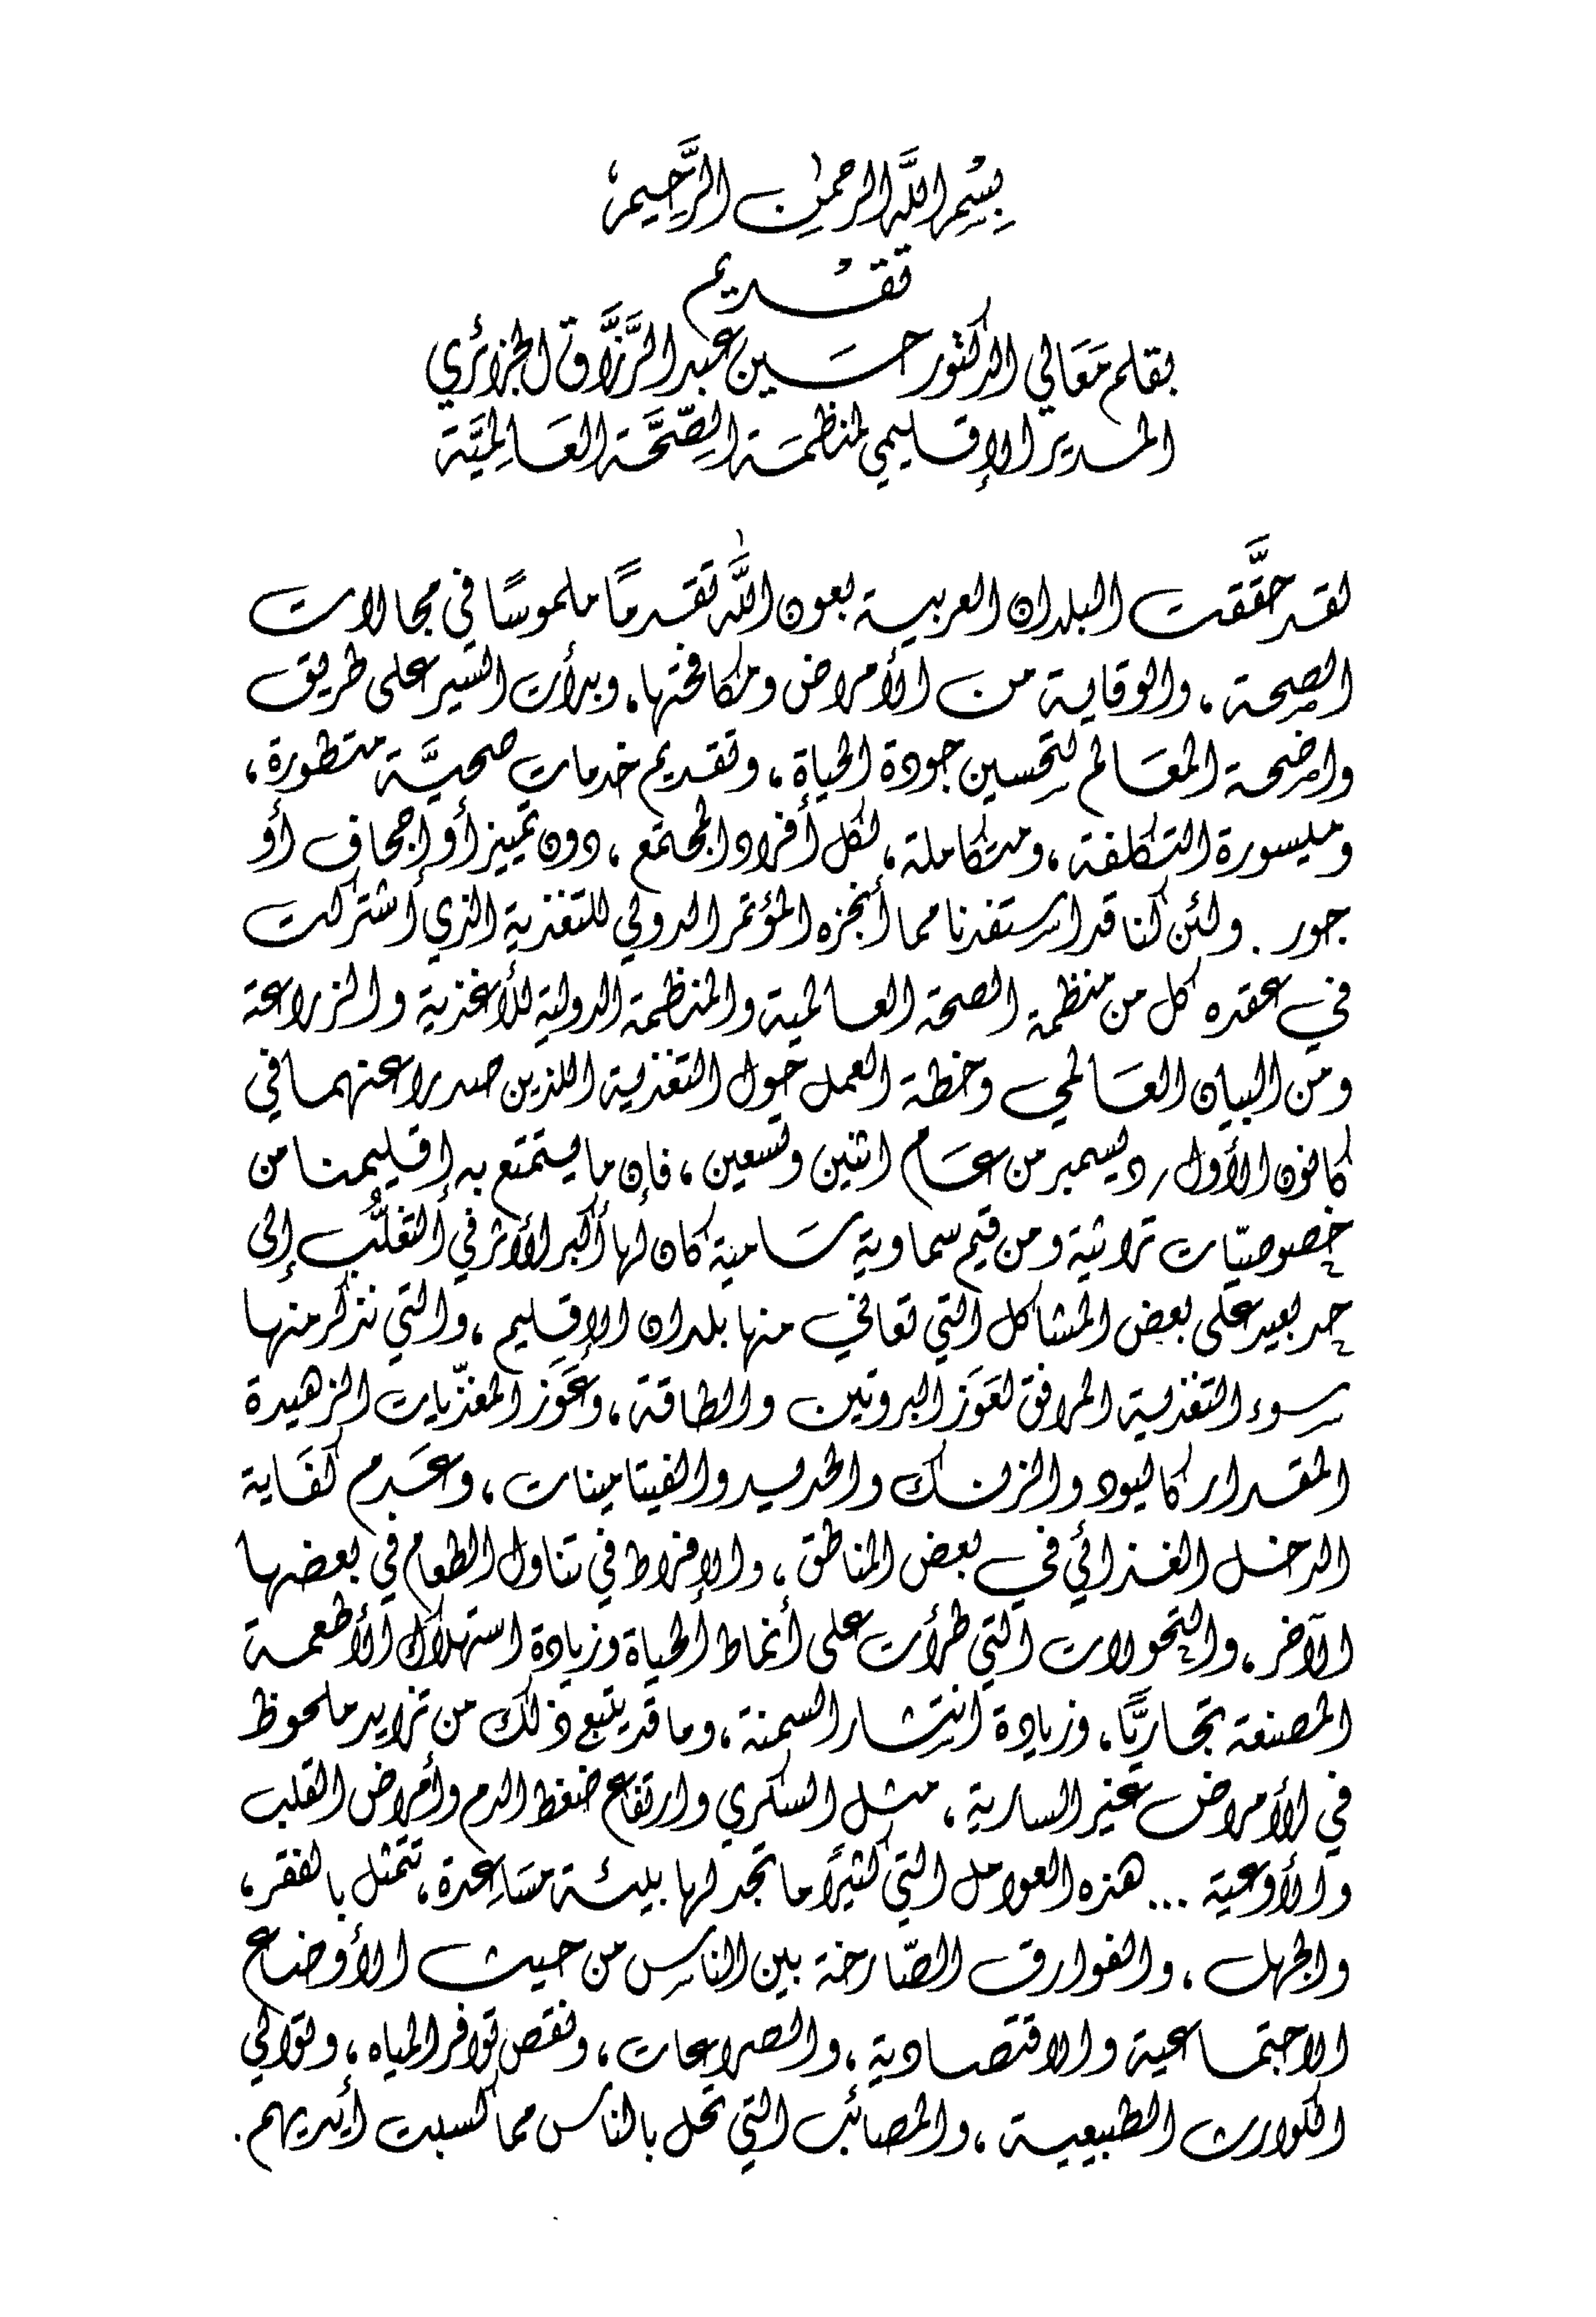 بِسْمِ اللَّهِ الرحمٰنِ الرَّحِيمِ،
تقْديم
بقلم مَعَالي الدكتور حسَين عبد الرَّزَّاق الجزائري
المدير الإقليمي لمنظمَة الصِّحَّة العَالِميَّة
لقد حقَّقت البلدان العربية بعون اللَّه تقدمًا ملموسًا في مجالات
الصحة ، والوقاية من الأمراض ومكافحتها، وبدأت السير على طريق
واضحة المعَالم لتحسين جودة الحياة ، وتقديم خدمات صحيَّة متطورة ،
وميسورة التكلفة ، ومتكاملة ، لكل أفراد المجتمع ، دون تمييز أو إجحاف أو
جور . ولئن كنا قد استفدنا مما أنجزه المؤتمر الدولي للتغذية الذي اشتركت
في عقده كل من منظمة الصحة العالمية والمنظمة الدولية للأغذية والزراعة
ومن البيان العَالمي وخطة العمل حول التغذية اللذين صدرا عنهما في
كانون الأول / ديسمبر من عَام اثنين وتسعين ، فإن ما يستمتع به إقليمنا من
خصوصيّات تراثية ومن قيم سماوية سَامية كان لها أكبر الأثر في التغلُّب إلى
حد بعيد على بعض المشاكل التي تعاني منها بلدان الإقليم ، والتي نذكر منها
سوء التغذية المرافق لعَوَز البروتين والطاقة ، وعَوَز المغذّيات الزهيدة
المقدار كاليود والزنك والحديد والفيتامينات ، وعَدم كفَاية
الدخل الغذائي في بعض المناطق ، والإفراط في تناول الطعام في بعضها
الآخر ، والتحولات التي طرأت على أنماط الحياة وزيادة استهلاك الأطعمة
المصنعة تجاريًّا ، وزيادة انتشار السمنة ، وما قد يتبع ذلك من تزايد ملحوظ
في الأمراض غير السارية ، مثل السكري وارتفاع ضغط الدم وأمراض القلب
والأوعية ... هذه العوامل التي كثيرًا ما تجد لها بيئة مسَاعِدة ، تتمثل بالفقر ،
والجهل ، والفوارق الصّارخة بين الناس من حيث الأوضاع
الاجتماعية والاقتصادية ، والصراعات ، ونقص توافر المياه ، وتوالي
الكوارث الطبيعية ، والمصائب التي تحل بالناس مما كسبت أيديهم .